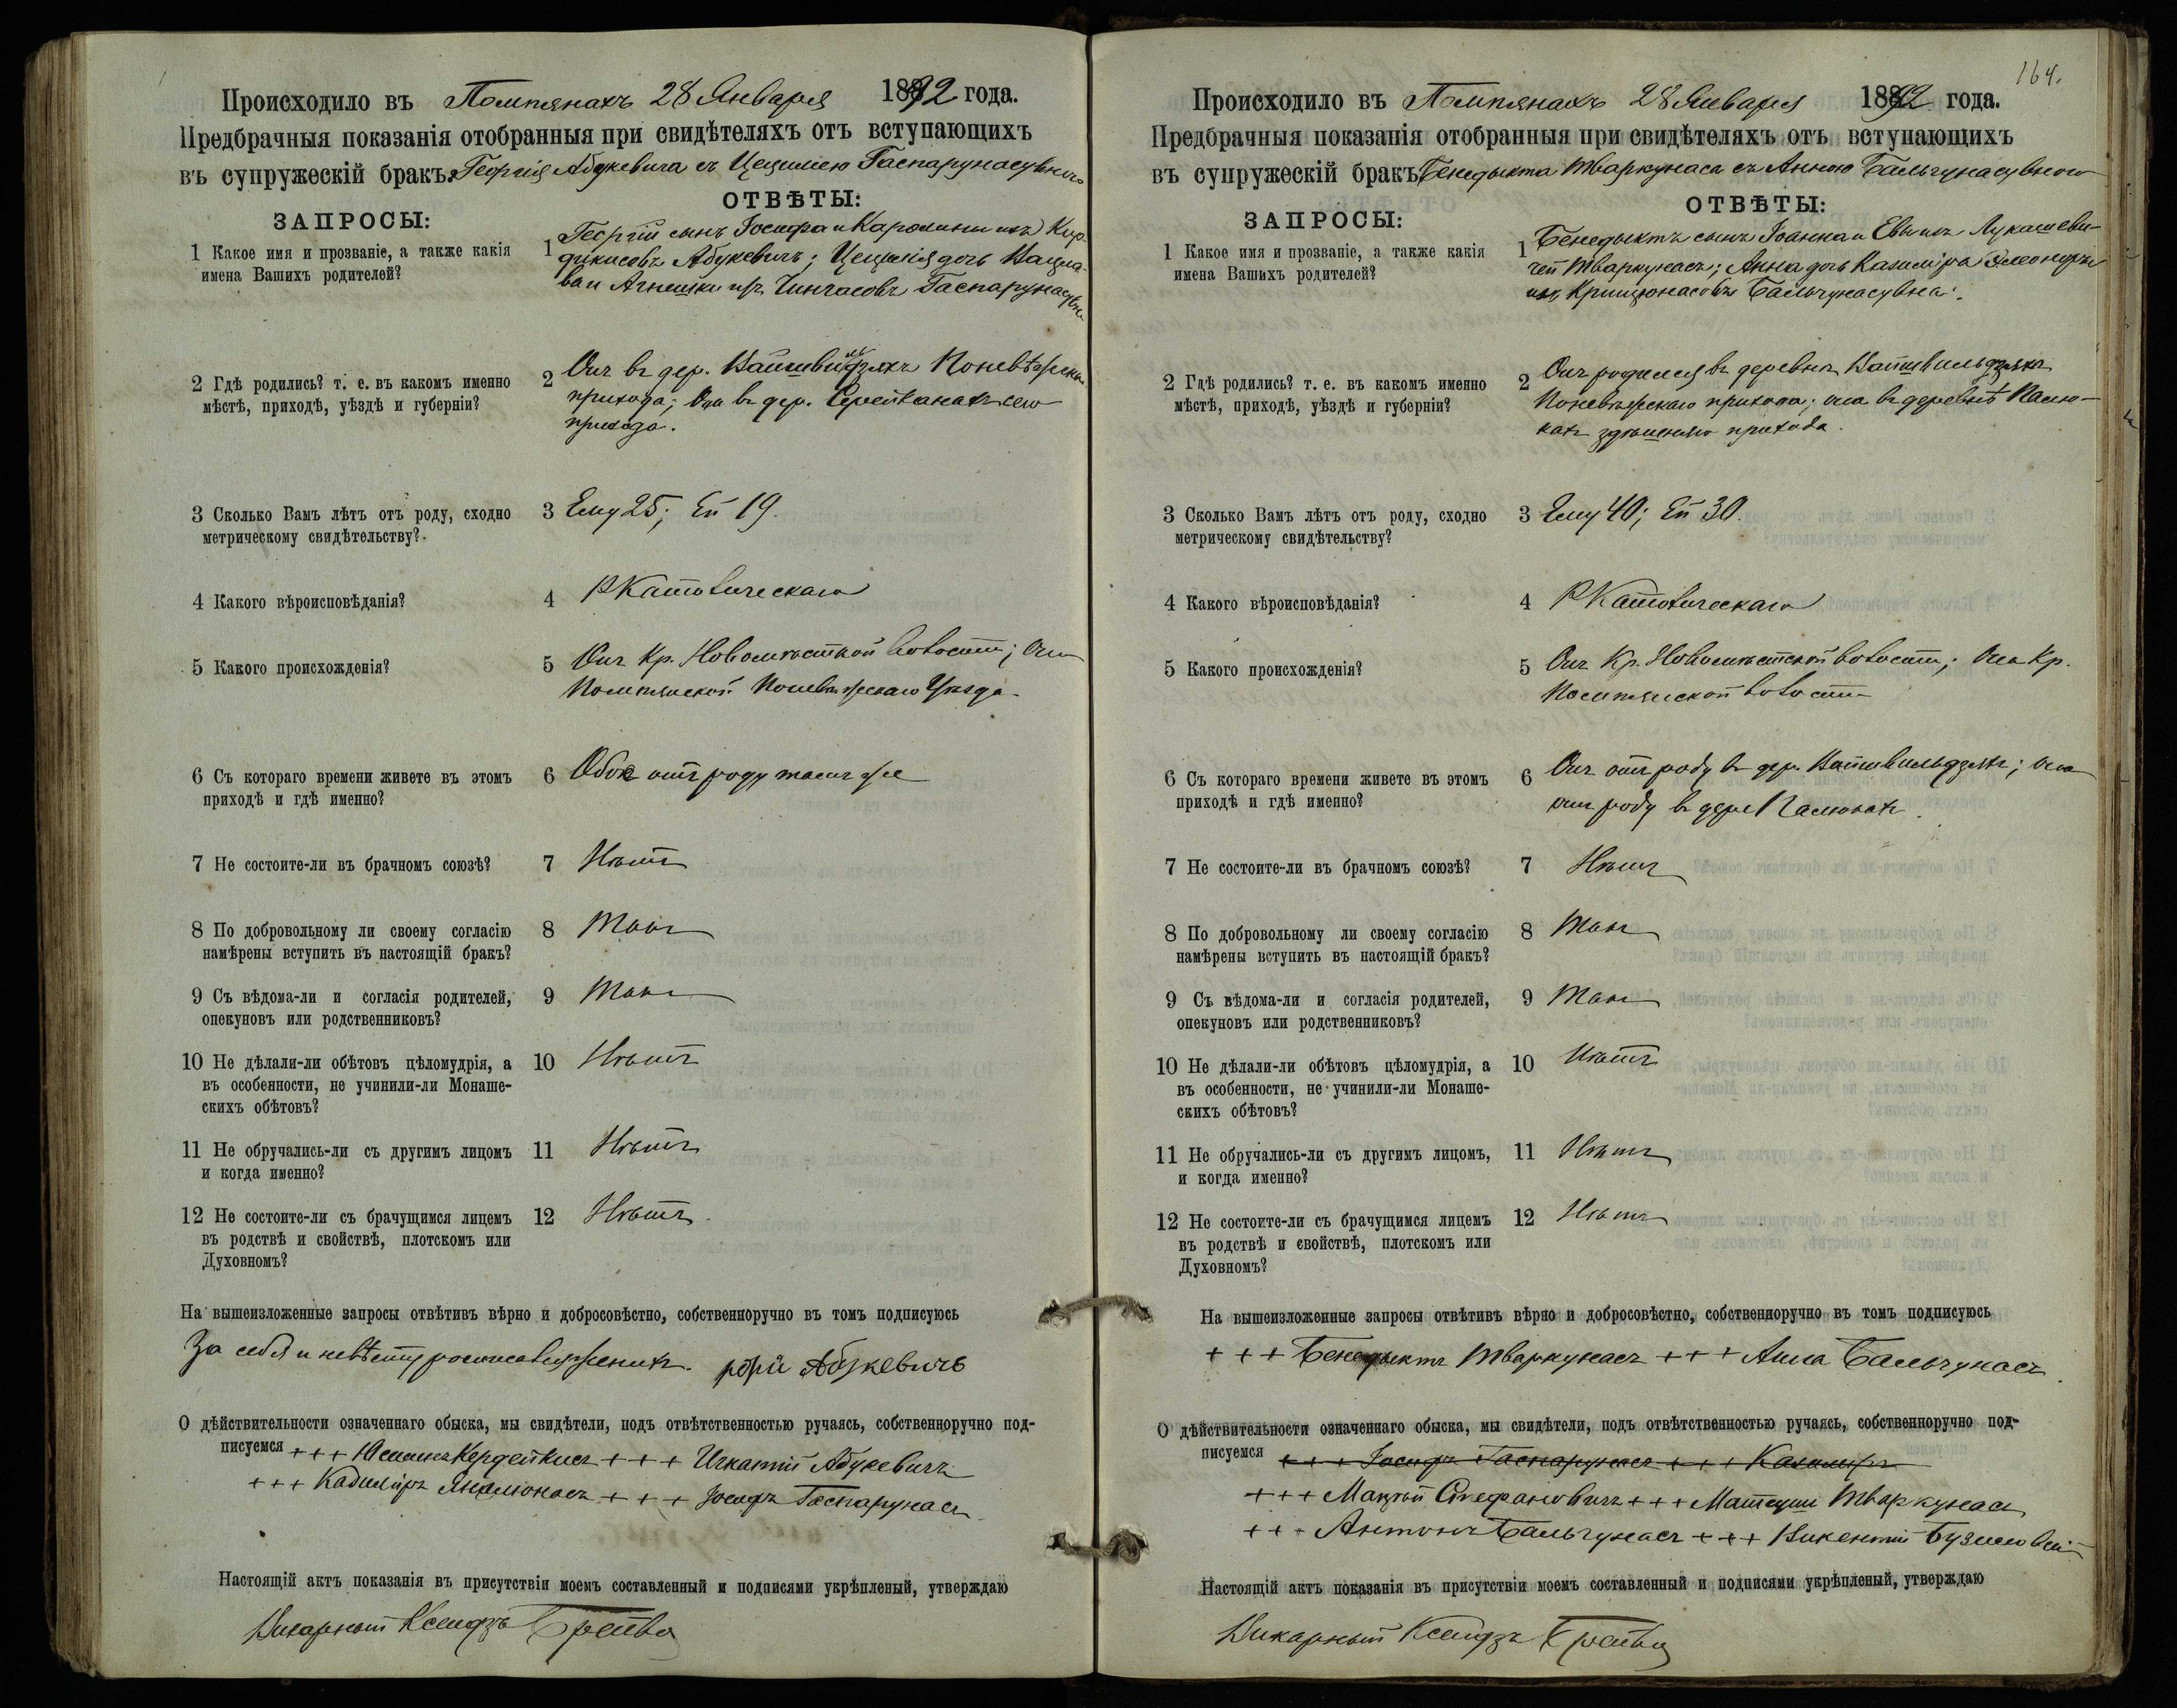 Происходило въ Помпянахъ 28 Января 1892 года.
Предбрачныя показанія отобранныя при свидѣтеляхъ отъ вступающихъ
въ супружескій бракъ: Георгія Абукевича съ Цециліею Гаспарунасувною
ЗАПРОСЫ:
ОТВѢТЫ:
1 Какое имя и прозваніе, а также какія
имена Вашихъ родителей?
1 Георгій сынъ Іосифа и Каролины изъ
Абукевичъ; Цецилія дочь Вацла-
ва и Агнешки изъ Гаспарунасувна
2 Гдѣ родились? т. е. въ какомъ именно
мѣстѣ, приходѣ, уѣздѣ и губерніи?
2 Онъ въ дер. Вайшвильдзяхъ Поневѣжскаго
прихода; Она въ дер. сего
прихода.
3 Сколько Вамъ лѣтъ отъ роду, сходно
метрическому свидѣтельству?
3 Ему 25; Ей 19.
4 Какого вѣроисповѣданія?
4 РКатолическаго
5 Какого происхожденія?
5 Онъ Кр. Новомѣстской волости; Она
Помпянской Поневѣжскаго Уѣзда
6 Съ котораго времени живете въ этомъ
приходѣ и гдѣ именно?
6 Обое отъ роду тамъ же
7 Не состоите-ли въ брачномъ союзѣ?
7 Нѣтъ
8 По добровольному ли своему согласію
намѣрены вступить въ настоящій бракъ?
8 Такъ
9 Съ вѣдома-ли и согласія родителей,
опекуновъ или родственниковъ?
9 Такъ
10 Не дѣлали-ли обѣтовъ цѣломудрія, а
въ особенности, не учинили-ли Монаше-
скихъ обѣтовъ?
10 Нѣтъ
11 Не обручались-ли съ другимъ лицомъ
и когда именно?
11 Нѣтъ
12 Не состоите-ли съ брачущимся лицемъ
въ родствѣ и свойствѣ, плотскомъ или
Духовномъ?
12 Нѣтъ
На вышеизложенные запросы отвѣтивъ вѣрно и добросовѣстно, собственноручно въ томъ подписуюсь
За себя и невѣсту женихъ. Абукевичъ
О дѣйствительности означеннаго обыска, мы свидѣтели, подъ отвѣтственностью ручаясь, собственноручно под-
писуемся +++ +++ Игнатій Абукевичъ
+++ Казиміръ +++ Іосифъ Гаспарунасъ
Настоящій актъ показанія въ присутствіи моемъ составленный и подписями укрѣпленый, утверждаю
Викарный Ксендзъ
164.
Происходило въ Помпянахъ 28 Января 1892 года.
Предбрачныя показанія отобранныя при свидѣтеляхъ отъ вступающихъ
въ супружескій бракъ: Бенедыкта Тваркунаса съ Анною Бальчунасувною
ЗАПРОСЫ:
ОТВѢТЫ:
1 Какое имя и прозваніе, а также какія
имена Вашихъ родителей?
1 Бенедыктъ сынъ Іоанна и Евы изъ Лукашеви-
чей Тваркунасъ; Анна дочь Казиміра Элеоноры
изъ Бальчунасувна.
2 Гдѣ родились? т. е. въ какомъ именно
мѣстѣ, приходѣ, уѣздѣ и губерніи?
2 Онъ родился въ деревнѣ Вайшвильдзяхъ
Поневѣжскаго прихода; она въ деревнѣ Палю-
кахъ здѣшняго прихода.
3 Сколько Вамъ лѣтъ отъ роду, сходно
метрическому свидѣтельству?
3 Ему 40; Ей 30.
4 Какого вѣроисповѣданія?
4 РКатолическаго
5 Какого происхожденія?
5 Онъ Кр. Новомѣстской волости; Она Кр.
Помпянской волости
6 Съ котораго времени живете въ этомъ
приходѣ и гдѣ именно?
6 Онъ отъ роду въ дер. Вайшвильдзяхъ; она
отъ роду въ дере Палюкахъ.
7 Не состоите-ли въ брачномъ союзѣ?
7 Нѣтъ
8 По добровольному ли своему согласію
намѣрены вступить въ настоящій бракъ?
8 Такъ
9 Съ вѣдома-ли и согласія родителей,
опекуновъ или родственниковъ?
9 Такъ
10 Не дѣлали-ли обѣтовъ цѣломудрія, а
въ особенности, не учинили-ли Монаше-
скихъ обѣтовъ?
10 Нѣтъ
11 Не обручались-ли съ другимъ лицомъ,
и когда именно?
11 Нѣтъ
12 Не состоите-ли съ брачущимся лицемъ
въ родствѣ и свойствѣ, плотскомъ или
Духовномъ?
12 Нѣтъ
На вышеизложенные запросы отвѣтивъ вѣрно и добросовѣстно, собственноручно въ томъ подписуюсь
+++ Бенедыктъ Тваркунасъ +++ Анна Бальчунасъ
О дѣйствительности означеннаго обыска, мы свидѣтели, подъ отвѣтственностью ручаясь, собственноручно под-
писуемся +++ Іосифъ Гаспарунасъ +++ Казиміръ
+++ Стефановичъ +++ Тваркунасъ
+++ Антонъ Бальчунасъ +++ Викентій
Настоящій актъ показанія въ присутствіи моемъ составленный и подписями укрѣпленый, утверждаю
Викарный Ксендзъ